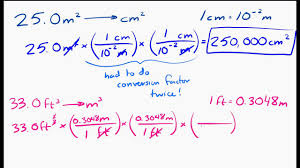 25.0m² → cm²    1cm = 10⁻² m
25.0 m² × (1 cm / 10⁻² m) × (1 cm / 10⁻² m) = 250,000 cm²
had to do
conversion factor
twice!
33.0 ft³ → m³    1ft = 0.3048m
33.0 ft³ × (0.3048m / 1 ft) × (0.3048m / 1 ft) × ( / )